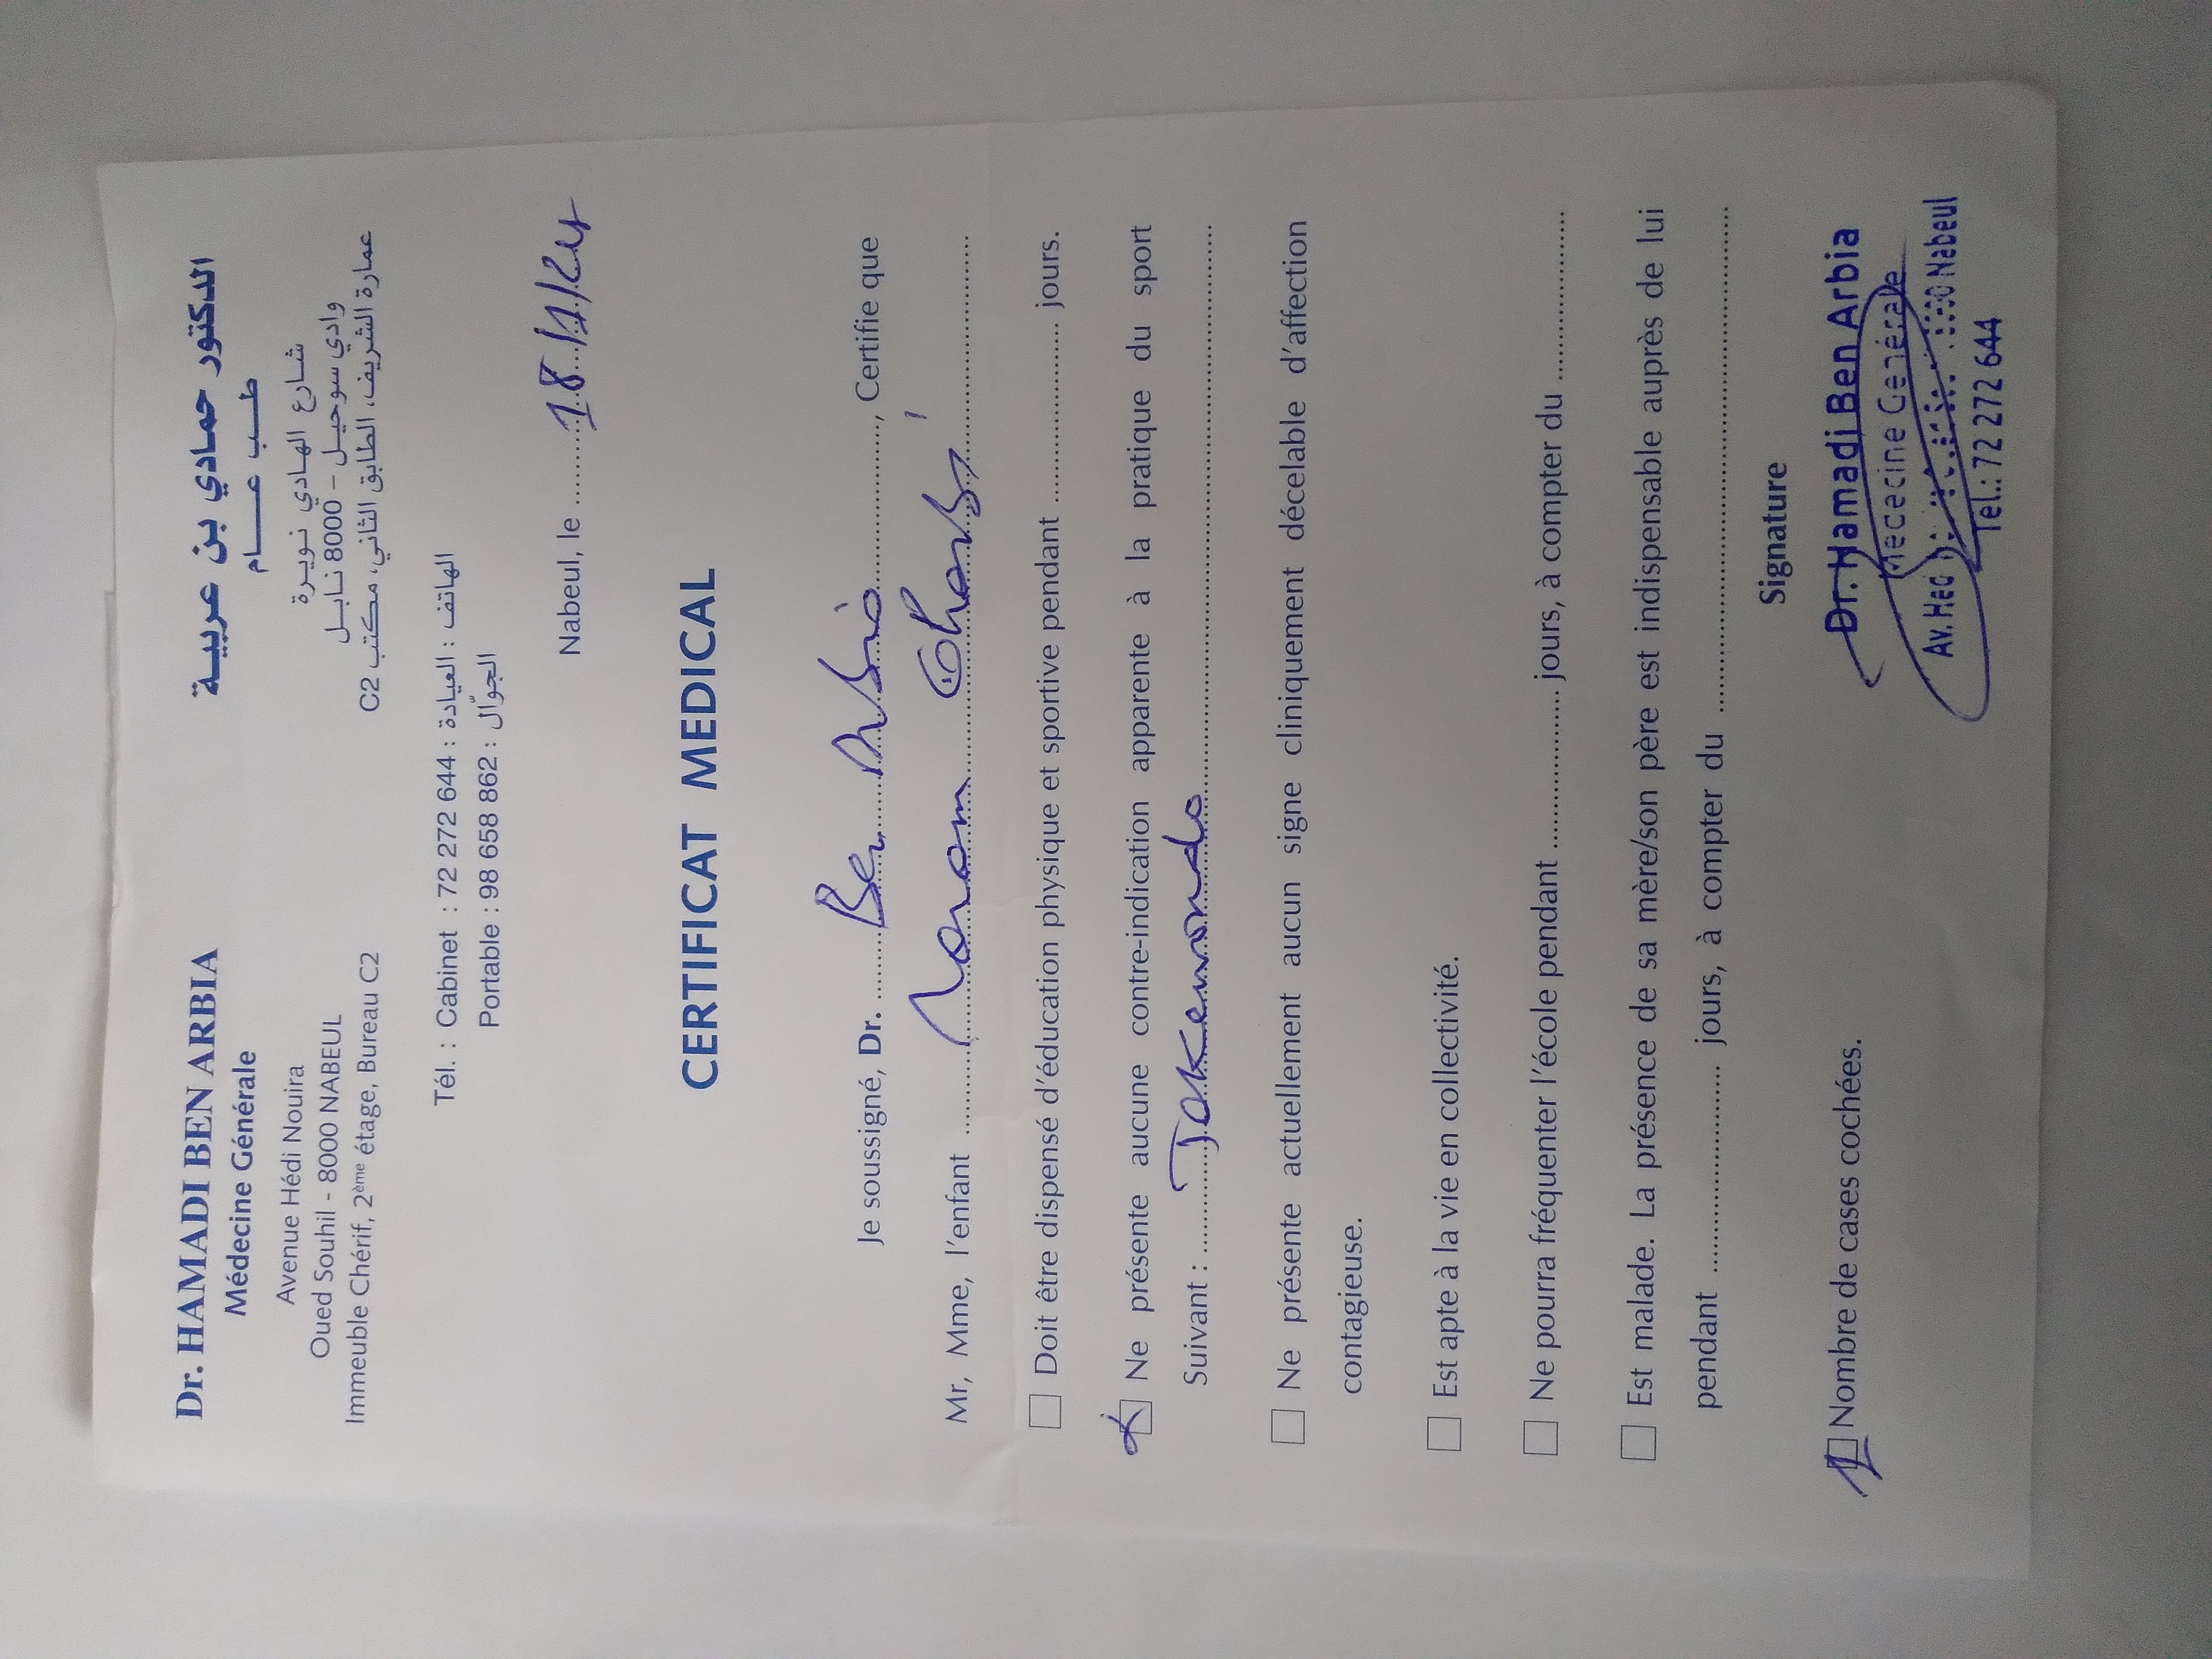 Dr. HAMADI BEN ARBIA
Médecine Générale
Avenue Hédi Nouira
Oued Souhil - 8000 NABEUL
Immeuble Chérif, 2ème étage, Bureau C2
الدكتور حمادي بن عربية
طب عام
شارع الهادي نويرة
وادي سوحيل - 8000 نابل
عمارة الشريف، الطابق الثاني، مكتب C2
Tél. : Cabinet : 72 272 644 : الهاتف : العيادة
Portable : 98 658 862 : الجوّال
Nabeul, le 18/1/24
CERTIFICAT MEDICAL
Je soussigné, Dr. Ben Arbia, Certifie que
Mr, Mme, l'enfant
Doit être dispensé d'éducation physique et sportive pendant jours.
Ne présente aucune contre-indication apparente à la pratique du sport
Suivant : Takewondo
Ne présente actuellement aucun signe cliniquement décelable d'affection
contagieuse.
Est apte à la vie en collectivité.
Ne pourra fréquenter l'école pendant jours, à compter du
Est malade. La présence de sa mère/son père est indispensable auprès de lui
pendant jours, à compter du
Signature
1 Nombre de cases cochées.
Dr. Hamadi Ben Arbia
Médecine Générale
Av. Hedi Nabeul
Tel.: 72 272 644